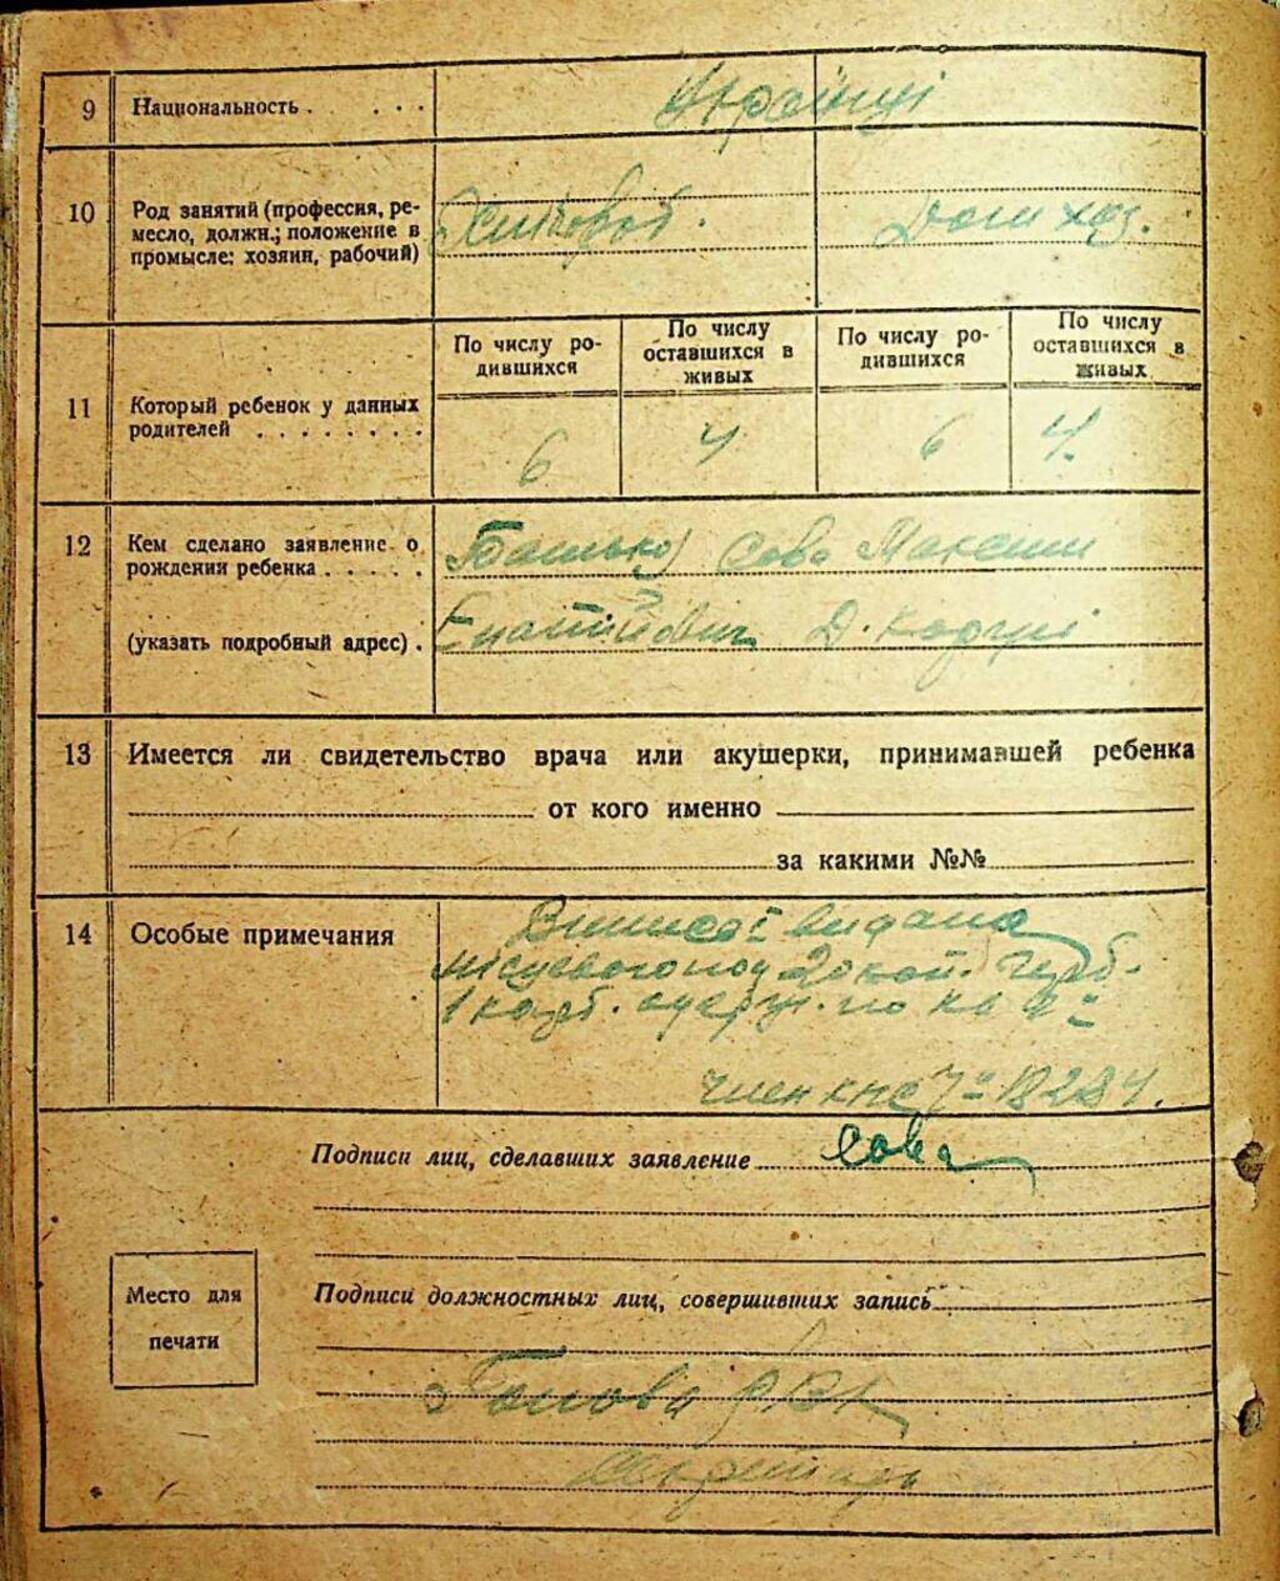 9 Национальность . . . . Українці
10 Род занятий (профессия, ре-
месло, должн.; положение в
промысле: хозяин, рабочий)
Дом хоз.
По числу ро-
дившихся
По числу
оставшихся в
живых
По числу ро-
дившихся
По числу
оставшихся в
живых
11 Который ребенок у данных
родителей . . . . . . . .
6 4 6 4.
12 Кем сделано заявление о
рождения ребенка . . . . .
Батько Сова Максим
(указать подробный адрес) .
13 Имеется ли свидетельство врача или акушерки, принимавшей ребенка
от кого именно
за какими №№
14 Особые примечания
видана
1 карб. одерж. по кв
член кнс
Подписи лиц, сделавших заявление Сова
Место для
печати
Подписи должностных лиц, совершивших запись
Голова
Секретарь